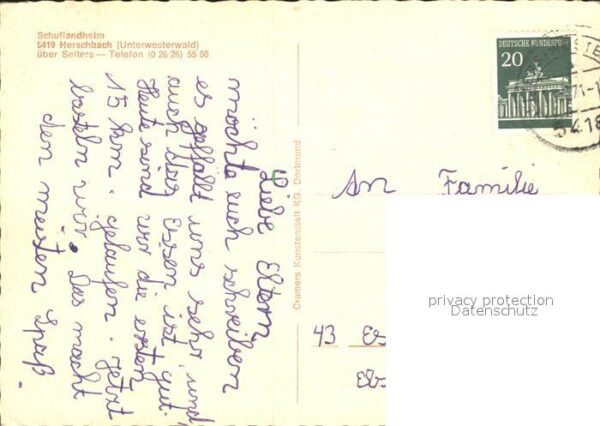 Schullandheim
5419 Herschbach (Unterwesterwald)
über Selters — Telefon (0 26 26) 55 50
Liebe Eltern
möchte euch schreiben
es gefällt uns sehr, und
auch das Essen ist gut.
Heute sind wir die ersten
15 km. gelaufen. jetzt
basteln wir. Das macht
den meisten Spaß.
Cramers Kunstanstalt KG. Dortmund
DEUTSCHE BUNDESPOST
20
5418
An Familie
43 Es
privacy protection
Datenschutz